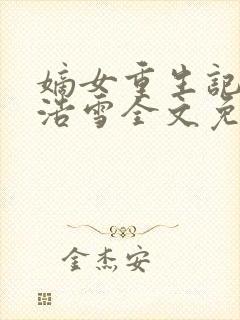 嫡女重生記
浩雪全文免
金杰安